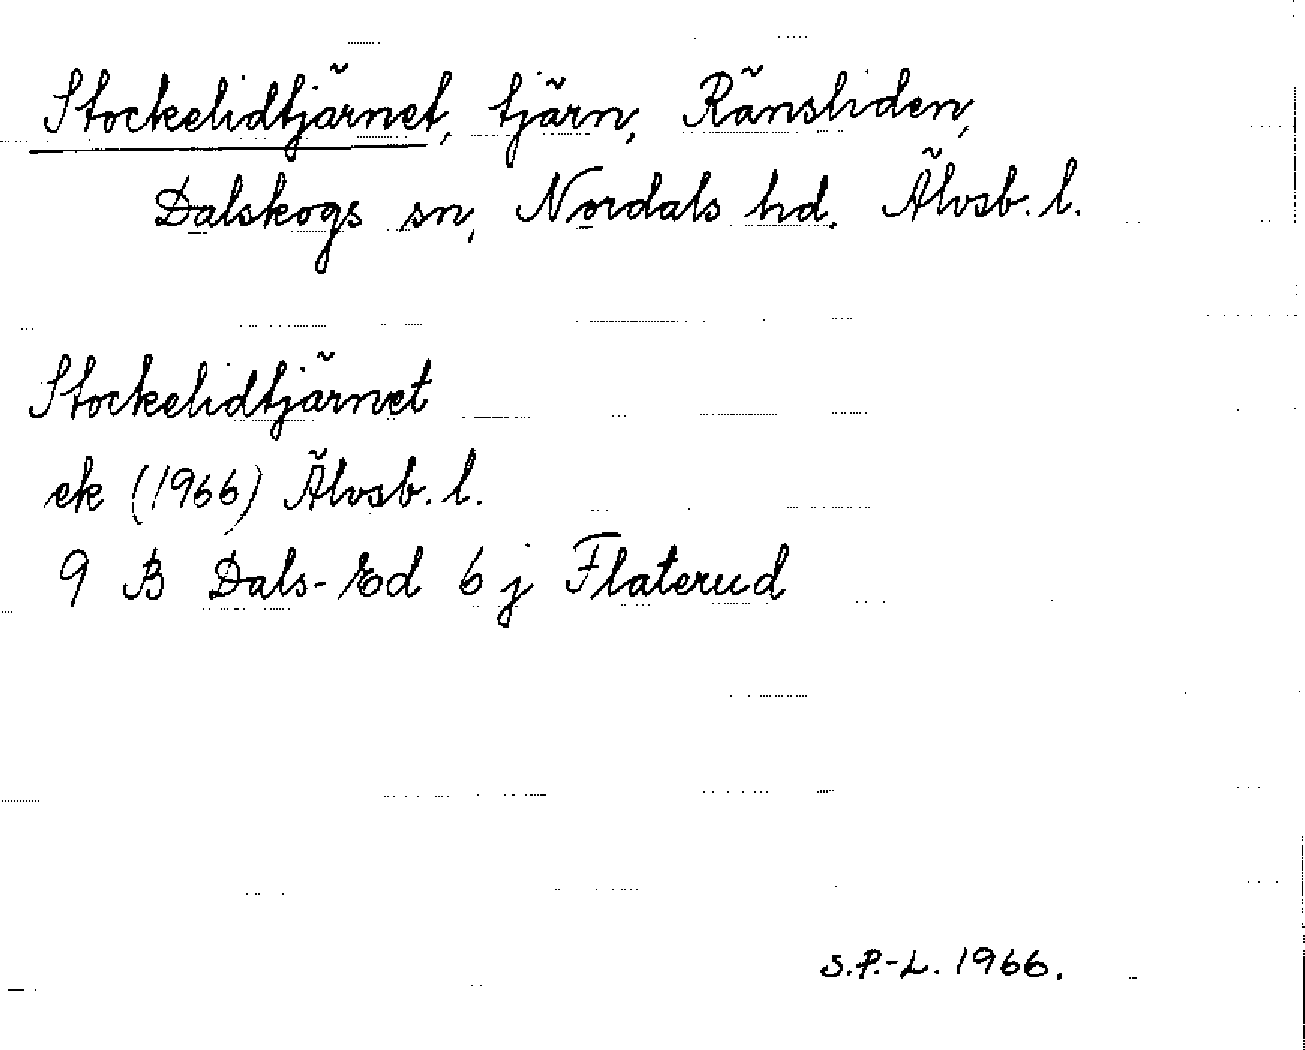 Stockelidtjärnet, tjärn, Ränsliden,
Dalskogs sn, Nordals hd. Älvsb. l.
Stockelidtjärnet
ek (1966) Älvsb. l.
9 B Dals-Ed 6 j Flaterud
S.P.-L. 1966.